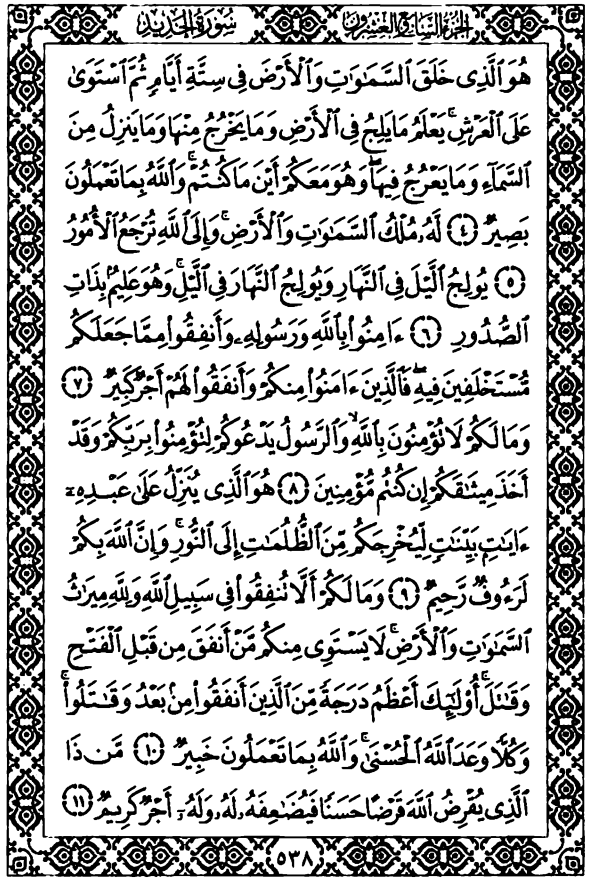 سُورَةُ الحَدِيد الجُزْءُ السَّابِعُ وَالعِشْرُونَ
هُوَ ٱلَّذِى خَلَقَ ٱلسَّمَٰوَٰتِ وَٱلْأَرْضَ فِى سِتَّةِ أَيَّامٍ ثُمَّ ٱسْتَوَىٰ
عَلَى ٱلْعَرْشِ ۚ يَعْلَمُ مَا يَلِجُ فِى ٱلْأَرْضِ وَمَا يَخْرُجُ مِنْهَا وَمَا يَنزِلُ مِنَ
ٱلسَّمَآءِ وَمَا يَعْرُجُ فِيهَا ۖ وَهُوَ مَعَكُمْ أَيْنَ مَا كُنتُمْ ۚ وَٱللَّهُ بِمَا تَعْمَلُونَ
بَصِيرٌ ٤ لَّهُۥ مُلْكُ ٱلسَّمَٰوَٰتِ وَٱلْأَرْضِ ۚ وَإِلَى ٱللَّهِ تُرْجَعُ ٱلْأُمُورُ
٥ يُولِجُ ٱلَّيْلَ فِى ٱلنَّهَارِ وَيُولِجُ ٱلنَّهَارَ فِى ٱلَّيْلِ ۚ وَهُوَ عَلِيمٌۢ بِذَاتِ
ٱلصُّدُورِ ٦ ءَامِنُوا۟ بِٱللَّهِ وَرَسُولِهِۦ وَأَنفِقُوا۟ مِمَّا جَعَلَكُم
مُّسْتَخْلَفِينَ فِيهِ ۖ فَٱلَّذِينَ ءَامَنُوا۟ مِنكُمْ وَأَنفَقُوا۟ لَهُمْ أَجْرٌ كَبِيرٌ ٧
وَمَا لَكُمْ لَا تُؤْمِنُونَ بِٱللَّهِ ۙ وَٱلرَّسُولُ يَدْعُوكُمْ لِتُؤْمِنُوا۟ بِرَبِّكُمْ وَقَدْ
أَخَذَ مِيثَٰقَكُمْ إِن كُنتُم مُّؤْمِنِينَ ٨ هُوَ ٱلَّذِى يُنَزِّلُ عَلَىٰ عَبْدِهِۦٓ
ءَايَٰتٍۭ بَيِّنَٰتٍ لِّيُخْرِجَكُم مِّنَ ٱلظُّلُمَٰتِ إِلَى ٱلنُّورِ ۚ وَإِنَّ ٱللَّهَ بِكُمْ
لَرَءُوفٌ رَّحِيمٌ ٩ وَمَا لَكُمْ أَلَّا تُنفِقُوا۟ فِى سَبِيلِ ٱللَّهِ وَلِلَّهِ مِيرَٰثُ
ٱلسَّمَٰوَٰتِ وَٱلْأَرْضِ ۚ لَا يَسْتَوِى مِنكُم مَّنْ أَنفَقَ مِن قَبْلِ ٱلْفَتْحِ
وَقَٰتَلَ ۚ أُو۟لَٰٓئِكَ أَعْظَمُ دَرَجَةً مِّنَ ٱلَّذِينَ أَنفَقُوا۟ مِنۢ بَعْدُ وَقَٰتَلُوا۟ ۚ
وَكُلًّا وَعَدَ ٱللَّهُ ٱلْحُسْنَىٰ ۚ وَٱللَّهُ بِمَا تَعْمَلُونَ خَبِيرٌ ١٠ مَّن ذَا
ٱلَّذِى يُقْرِضُ ٱللَّهَ قَرْضًا حَسَنًا فَيُضَٰعِفَهُۥ لَهُۥ وَلَهُۥٓ أَجْرٌ كَرِيمٌ ١١
٥٣٨